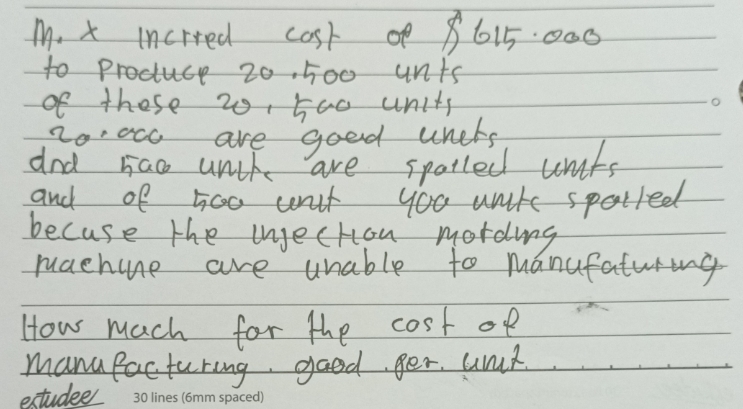 M. X Incrred cost of $ 615.000
to produce 20.500 unts
of those 20,500 units
20.000 are good unets
and 500 unit are spoiled units
and of 500 unit 400 units spoiled
becuse the injection molding
machine are unable to manufaturing
How much for the cost of
manufacturing. good per. unit.......
estudee 30 lines (6mm spaced)